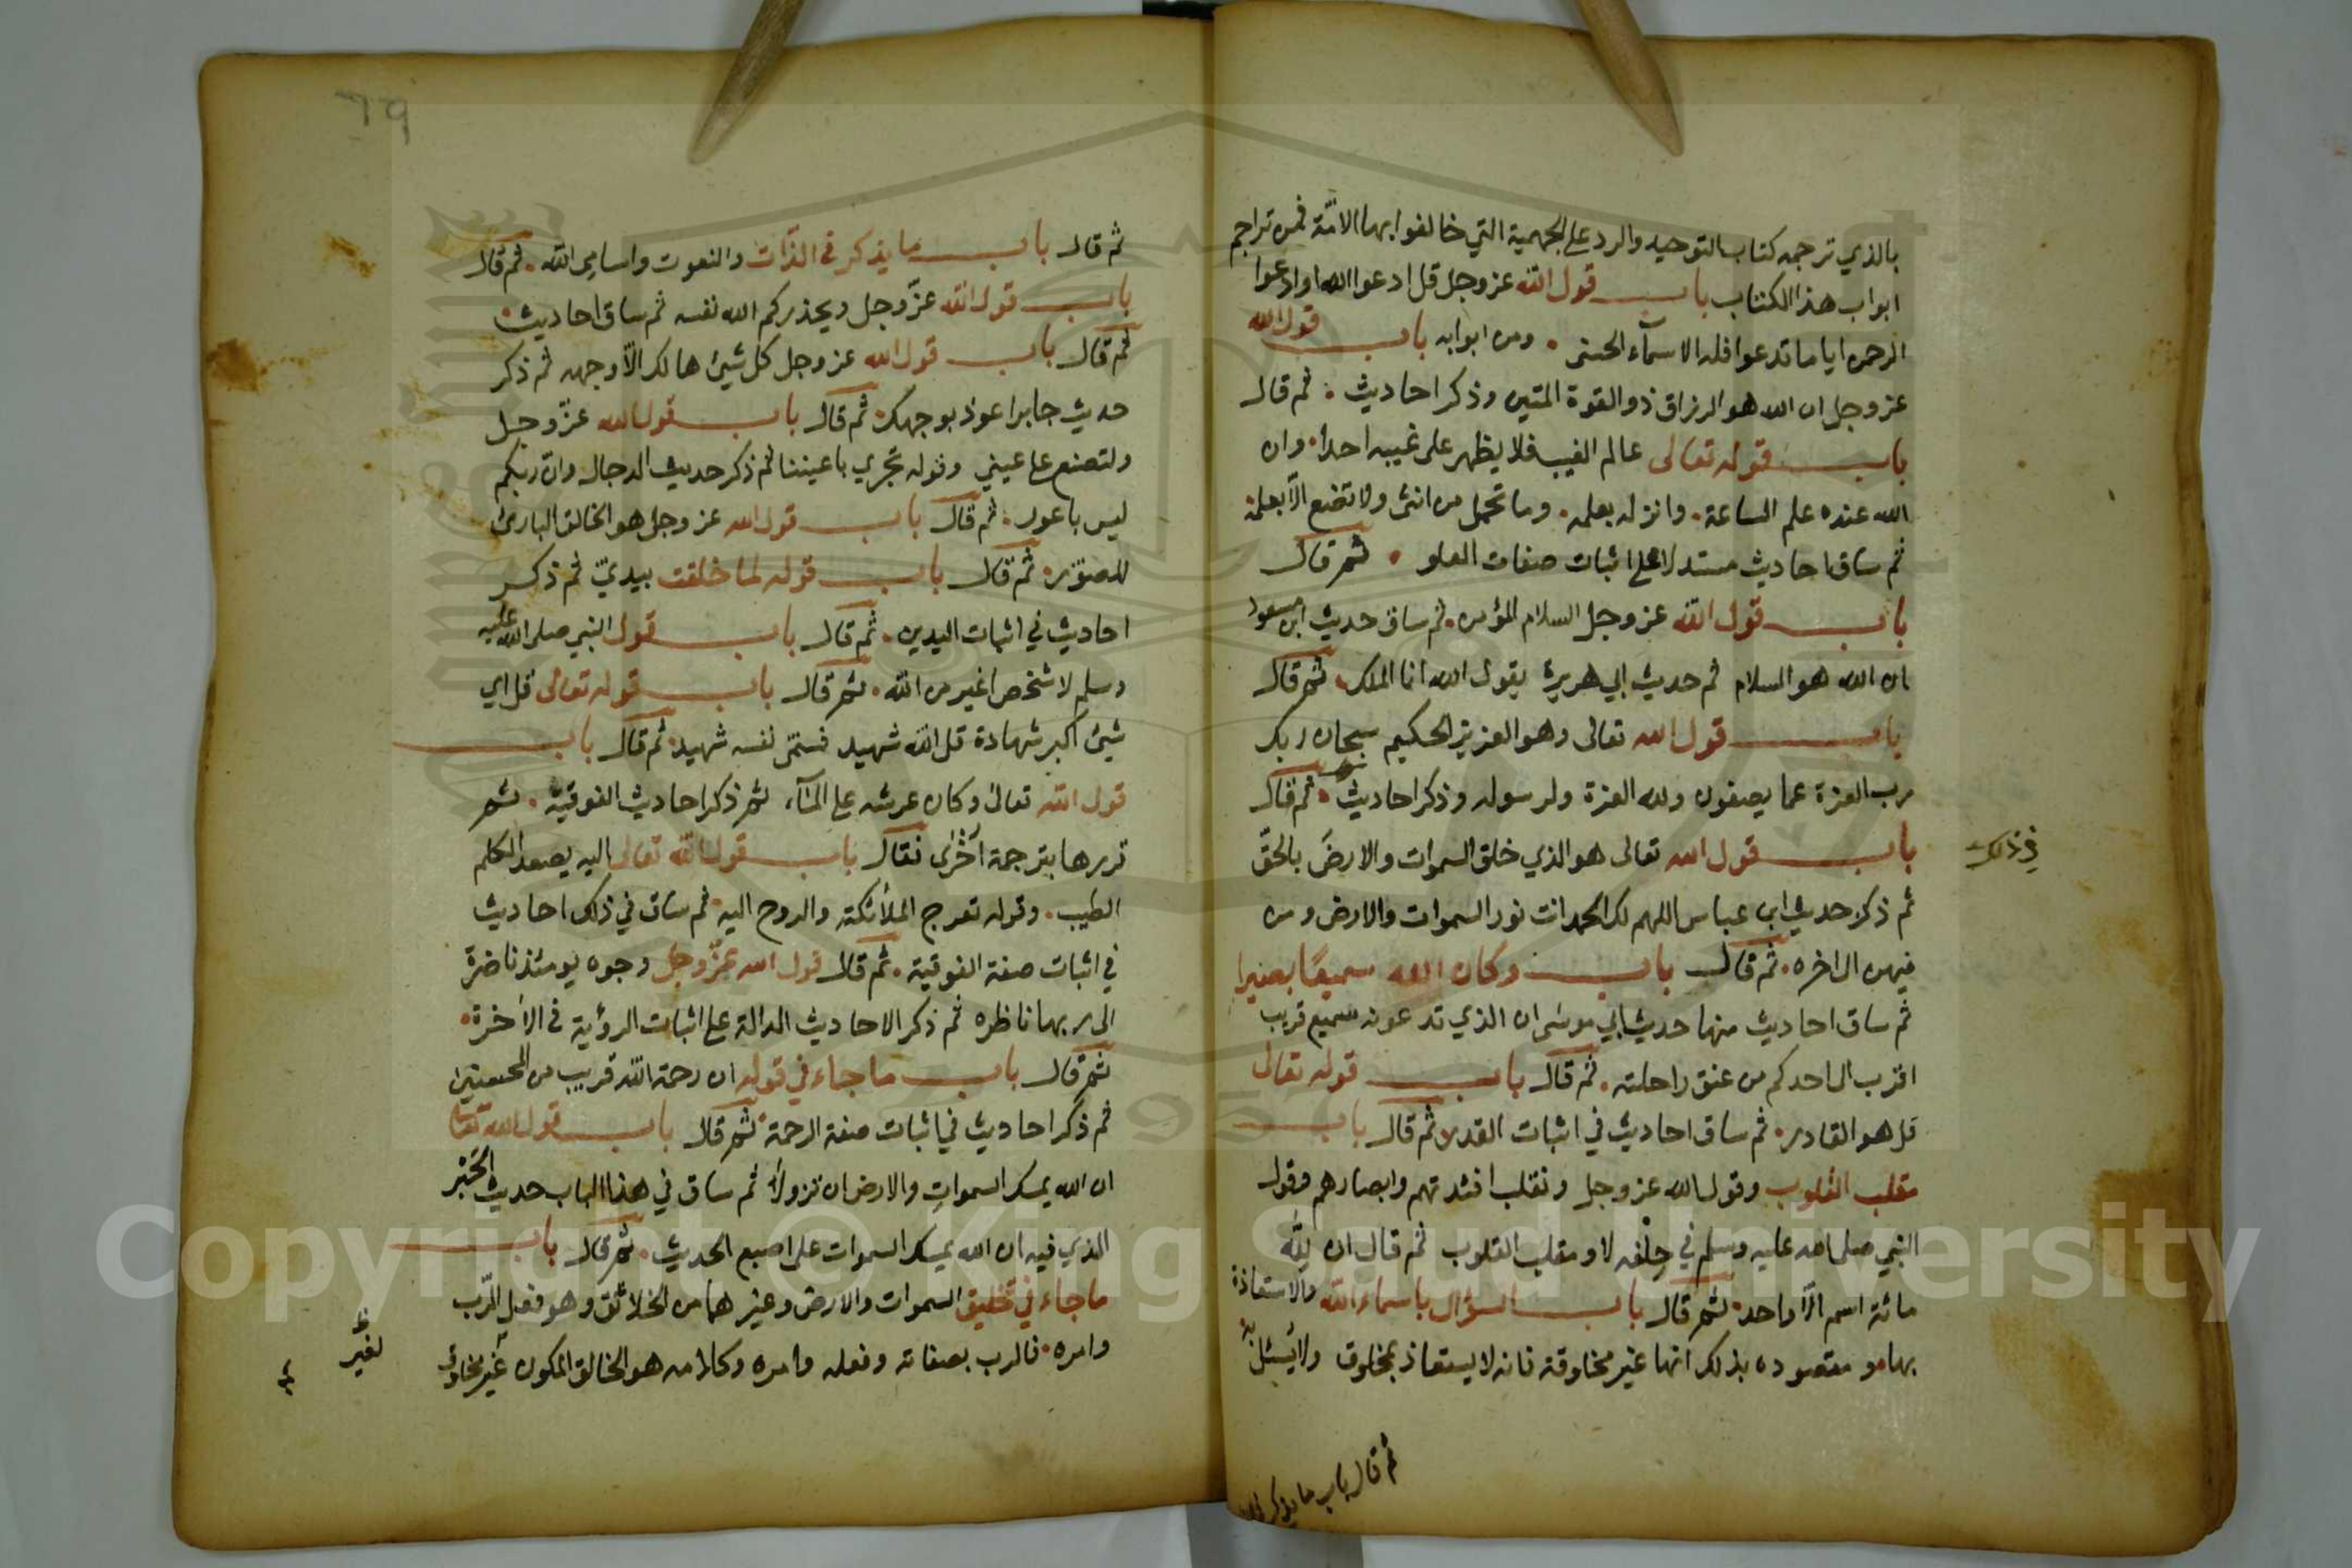 بالذي ترجمه كتاب التوحيد والرد على الجهمية التي خالفوا بها الامّة فمن تراجم
ابواب هذا الكتاب باب قول الله عز وجل قل ادعوا الله او ادعوا
الرحمن ايا ما تدعوا فله الاسمآء الحسنى . ومن ابوابه باب قول الله
عز وجل ان الله هو الرزاق ذو القوة المتين وذكر احاديث . ثم قال
باب قوله تعالى عالم الغيب فلا يظهر على غيبه احدا . وان
الله عنده علم الساعة . وانزله بعلمه . وما تحمل من انثى ولا تضع الّا بعلمه
ثم ساق احاديث مستدلا على اثبات صفات العلو . ثم قال
باب قول الله عز وجل السلام المؤمن . ثم ساق حديث ابن مسعود
ان الله هو السلام ثم حديث ابي هريرة يقول الله انا الملك . ثم قال
باب قول الله تعالى وهو العزيز الحكيم سبحان ربك
رب العزة عما يصفون ولله العزة ولرسوله وذكر احاديث . ثم قال
في ذلك
باب قول الله تعالى هو الذي خلق السموات والارض بالحق
ثم ذكر حديث ابن عباس اللهم لك الحمد انت نور السموات والارض ومن
فيهن الى اخره . ثم قال باب وكان الله سميعًا بصيرا
ثم ساق احاديث منها حديث ابي موسى ان الذي تدعونه سميع قريب
اقرب الى احدكم من عنق راحلته . ثم قال باب قوله تعالى
قل هو القادر . ثم ساق احاديث في اثبات القدر ثم قال باب
مقلب القلوب وقول الله عز وجل ونقلب افئدتهم وابصارهم وقول
النبي صلى الله عليه وسلم في حلفه لا ومقلب القلوب ثم قال ان لله
مائة اسم الّا واحد . ثم قال باب السؤال باسماء الله والاستعاذة
بها مو مقصوده بذلك انها غير مخلوقة فانه لا يستعاذ بمخلوق ولا يُسئل به
ثم قال باب ما يذكر
69
ثم قال باب ما يذكر في الذّات والنعوت واسامي الله . ثم قال
باب قول الله عزّ وجل ويحذركم الله نفسه ثم ساق احاديث .
ثم قال باب قول الله عز وجل كل شيئ هالك الّا وجهه ثم ذكر
حديث جابر اعوذ بوجهك . ثم قال باب قول الله عزّ وجل
ولتصنع على عيني وقوله تجري باعيننا ثم ذكر حديث الدجال وانّ ربكم
ليس باعور . ثم قال باب قول الله عز وجل هو الخالق البارئ
المصوّر . ثم قال باب قوله لما خلقت بيديّ ثم ذكر
احاديث في اثبات اليدين . ثم قال باب قول النبي صلى الله عليه
وسلم لا شخص اغير من الله . ثم قال باب قوله تعالى قل اي
شيئ اكبر شهادة قل الله شهيد فسمّى نفسه شهيد . ثم قال باب
قول الله تعالى وكان عرشه على المآء ثم ذكر احاديث الفوقية . ثم
قررها بترجمة اخرى فقال باب قول الله تعالى اليه يصعد الكلم
الطيب . وقوله تعرج الملائكته والروح اليه . ثم ساق في ذلك احاديث
في اثبات صفة الفوقية . ثم قال قول الله عزّ وجل وجوه يومئذ ناضرة
الى ربها ناظره ثم ذكر الاحاديث الدالة على اثبات الرؤية في الاخرة .
ثم قال باب ما جاء في قوله ان رحمة الله قريب من المحسنين
ثم ذكر احاديث في اثبات صفة الرحمة . ثم قال باب قول الله تعالى
ان الله يمسك السموات والارض ان تزولا ثم ساق في هذا الباب حديث الحَبْر
الذي فيه ان الله يمسك السموات على اصبع الحديث . ثم قال باب
ما جاء في تخليق السموات والارض وغيرهما من الخلائق وهو فعل الرّب
وامره . فالرب بصفاته وفعله وامره وكلامه هو الخالق المكون غير مخلوق
Copyright © King Saud University
1957